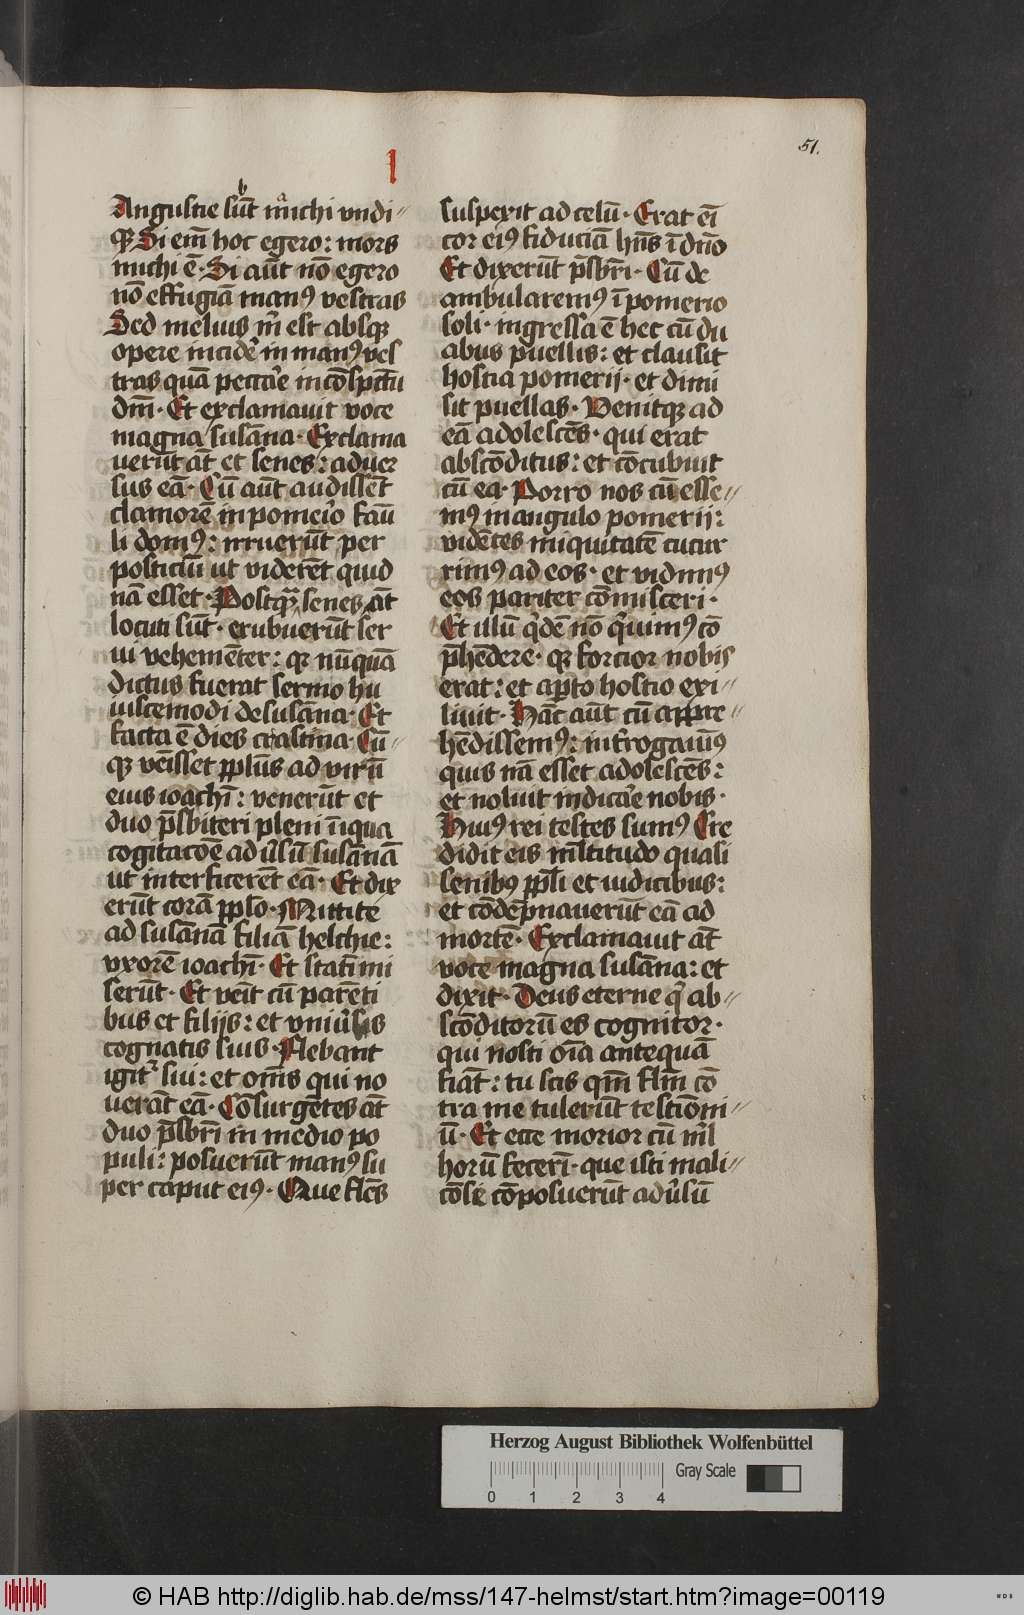 51.
l
Angustie sūt michi vndi//
qꝫ Si em̄ hoc egero: mors
michi ē· Si aūt nō egero
nō effugiā manꝰ vestras
Sed melius m̄ est absqꝫ
opere incidē in manꝰ ves
tras quā peccāe in cōspctu
dm̄· Et exclamauit voce
magna susāna· Exclama
uerūt āt et senes: aduer
sus eā· Cū aūt audissēt
clamorē in pomeīo faū
li domꝰ: irruerūt per
posticiū ut viderēt quid
nā esset· Postqꝫ senes āt
locuti sūt· erubuerūt ser
ui vehemēter: qꝛ nūquā
dictus fuerat sermo hu
iuscemodi de susāna· Et
facta ē dies crastina· Cū//
qꝫ vēisset pplūs ad virū
eius ioachī: venerūt et
duo p̄sbiteri pleni iīqua
cogitacōe ad ūsū susānā
ut interficerēt eā· Et dix
erūt corā pplo· Mittite
ad susānā filiā helchie:
vxorē ioachī· Et statī mi
serūt· Et veīt cū parēti
bus et filijs: et vniūsis
cognatis suis· Flebant
igitᷣ sui: et om̄s qui no
uerāt eā· Cōsurgētes āt
duo p̄sbrī in medio po
puli: posuerūt manꝰ su
per caput eiꝰ· Que flēs
suspexit ad celū· Erat eī
cor eiꝰ fiduciā hn̄s ī dn̄o
Et dixerūt p̄sbrī· Cū de
ambularemꝰ ī pomerio
soli· ingressa ē hec cū du
abus puellis: et clausit
hostia pomerij· et dimi
sit puellas· Venitqꝫ ad
eā adolescēs· qui erat
abscōditus: et cōcubuit
cū ea· Porro nos cū esse//
mꝰ in angulo pomerij:
vidētes iniquitatē cucur
rimꝰ ad eos· et vidimꝰ
eos pariter cōmisceri·
Et illū qͥdē nō qͥuimꝰ cō
p̄hēdere· qꝛ forcior nobis
erat: et apto hostio exi//
liuit· Hāc aūt cū appre//
hēdissemꝰ: introgauīꝰ
quis nā esset adolescēs:
et noluit indicāe nobis·
Huiꝰ rei testes sumꝰ Cre
didit eis ml̄titudo quasi
senibꝰ ppl̄i et iudicibus:
et cōdēpnauerūt eā ad
mortē· Exclamauit āt
voce magna susāna: et
dixit· Deus eterne qͥ ab//
scōditorū es cognitor·
qui nosti oīa antequā
fiāt: tu scis qm̄ flm̄ cō
tra me tulerūt testīoni//
ū· Et ecce morior cū nͥl
horū fecerī· que isti mali//
cōse cōposuerūt adūsū
Herzog August Bibliothek Wolfenbüttel
Gray Scale
0 1 2 3 4
© HAB http://diglib.hab.de/mss/147-helmst/start.htm?image=00119